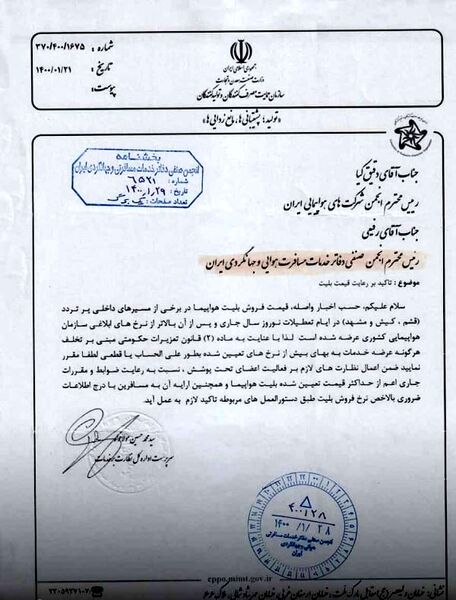 شماره : ۳۷۰/۴۰۰/۱۶۷۵
تاریخ : ۱۴۰۰/۰۱/۲۱
پیوست:
جمهوری اسلامی ایران
وزارت صنعت، معدن و تجارت
سازمان حمایت مصرف کنندگان و تولیدکنندگان
«تولید؛ پشتیبانی ها، مانع زدایی ها»
بخشنامه
انجمن صنفی دفاتر خدمات مسافرتی و جهانگردی ایران
شماره: ۶۵۲۱
تاریخ: ۱۴۰۰/۱/۲۹
تعداد صفحات: یک برگ
جناب آقای دقیق کیا
رییس محترم انجمن شرکت های هواپیمایی ایران
جناب آقای رفیعی
رییس محترم انجمن صنفی دفاتر خدمات مسافرت هوایی و جهانگردی ایران
موضوع : تاکید بر رعایت قیمت بلیت
سلام علیکم، حسب اخبار واصله، قیمت فروش بلیت هواپیما در برخی از مسیرهای داخلی پر تردد
(قشم . کیش و مشهد) در ایام تعطیلات نوروز سال جاری و پس از آن بالاتر از نرخ های ابلاغی سازمان
هواپیمایی کشوری عرضه شده است . لذا با عنایت به ماده (۲) قانون تعزیرات حکومتی مبنی بر تخلف
هرگونه عرضه خدمات به بهای بیش از نرخ های تعیین شده بطور علی الحساب یا قطعی لطفا مقرر
نمایید ضمن اعمال نظارت های لازم بر فعالیت اعضای تحت پوشش ، نسبت به رعایت ضوابط و مقررات
جاری اعم از حداکثر قیمت تعیین شده بلیت هواپیما و همچنین ارایه آن به مسافرین با درج اطلاعات
ضروری بالاخص نرخ فروش بلیت طبق دستورالعمل های مربوطه تاکید لازم به عمل آید.
سید محمد حسین مولاخواه
سرپرست اداره کل نظارت بر خدمات
۴۰۰۱۲۸
۱۴۰۰/۱/۲۸
cppo.mimt.gov.ir